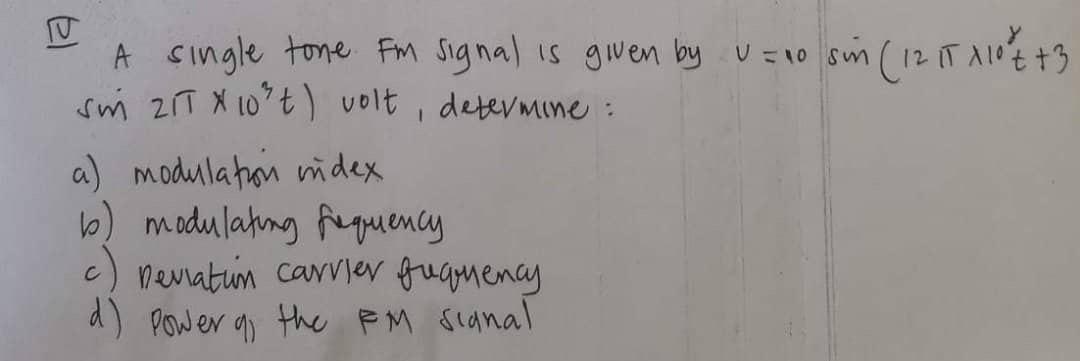 IV
A single tone Fm signal is given by v = 10 sin (12 π x10⁸t +3
sin 2π x 10³t) volt, determine:
a) modulation index
b) modulating frequency
c) Deviation carrier frequency
d) Power of the FM signal